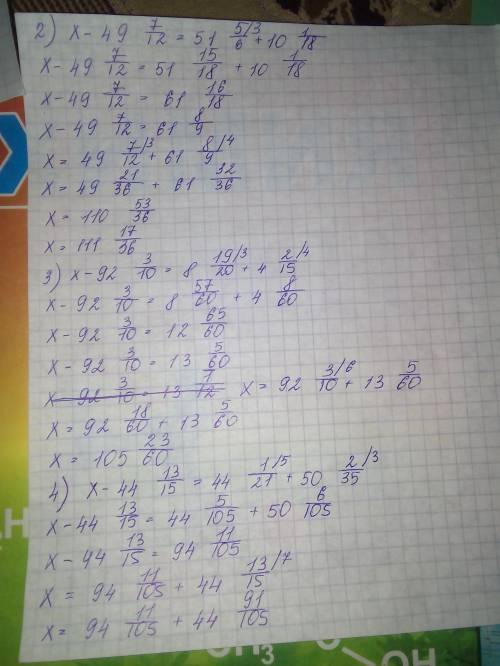 2) x - 49 7/12 = 51 5/6 /3 + 10 1/18
x - 49 7/12 = 51 15/18 + 10 1/18
x - 49 7/12 = 61 16/18
x - 49 7/12 = 61 8/9
x = 49 7/12 /3 + 61 8/9 /4
x = 49 21/36 + 61 32/36
x = 110 53/36
x = 111 17/36
3) x - 92 3/10 = 8 19/20 /3 + 4 2/15 /4
x - 92 3/10 = 8 57/60 + 4 8/60
x - 92 3/10 = 12 65/60
x - 92 3/10 = 13 5/60
x - 92 3/10 = 13 1/12 x = 92 3/10 /6 + 13 5/60
x = 92 18/60 + 13 5/60
x = 105 23/60
4) x - 44 13/15 = 44 1/21 /5 + 50 2/35 /3
x - 44 13/15 = 44 5/105 + 50 6/105
x - 44 13/15 = 94 11/105
x = 94 11/105 + 44 13/15 /7
x = 94 11/105 + 44 91/105
CH3